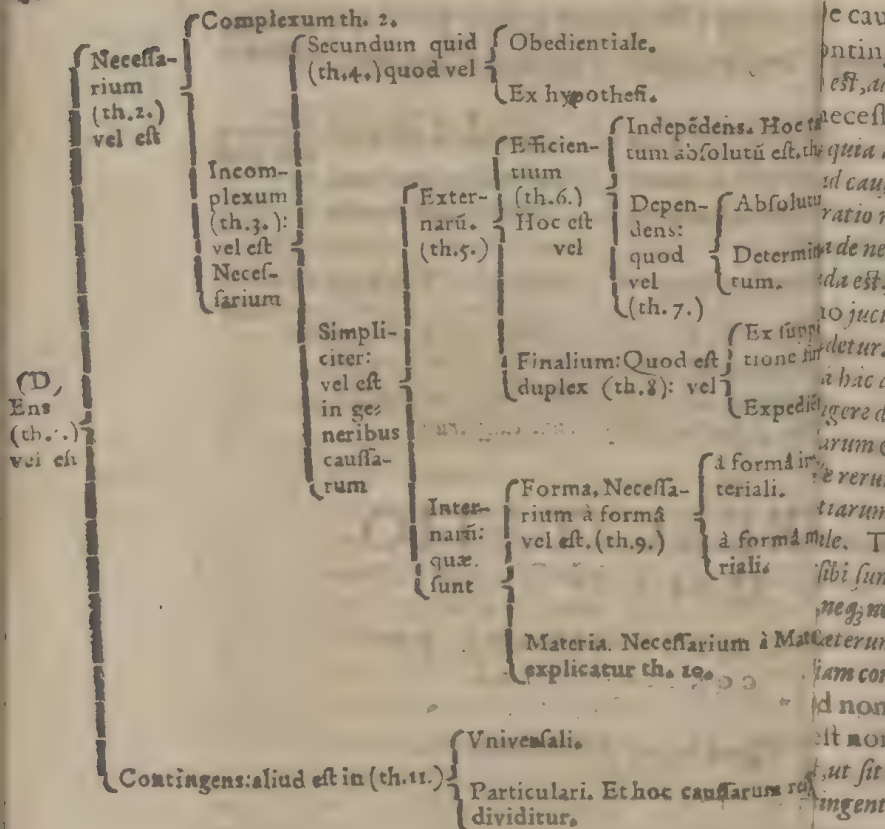 (D,
Ens
(th. .)
vel est
Necessa-
rium
(th.2.)
vel est
Complexum th. 2.
Incom-
plexum
(th.3.):
vel est
Neces-
sarium
Secundum quid
(th.4.) quod vel
Obedientiale.
Ex hypothesi.
Simpli-
citer:
vel est
in ge-
neribus
caussa-
rum
Exter-
narū.
(th.5.)
Efficien-
tium
(th.6.)
Hoc est
vel
Indepēdens. Hoc
tum absolutū est.
Depen-
dens:
quod
vel
(th.7.)
Absolutu
Determi
tum.
Finalium: Quod est
duplex (th.8): vel
Ex
tione
Expedi
Inter-
narū:
quæ.
sunt
Forma. Necessa-
rium à formâ
vel est. (th.9.)
à formâ
teriali.
à formâ
riali.
Materia. Necessarium à
explicatur th. 10.
Contingens: aliud est in (th.11.)
Vniversali.
Particulari. Et hoc caussarum
dividitur.
e cau
est, ac
necess
quia
ratio
de ne
da est.
detur.
à hac
gere d
arum
rerum
tiarum
T
sibi sun
neq;
cæterum
iam con
d non
est non
, ut sit
ingent